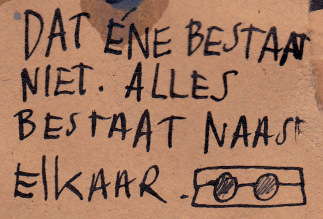 DAT ÉNE BESTAAT
NIET. ALLES
BESTAAT NAAST
ElKAAR.